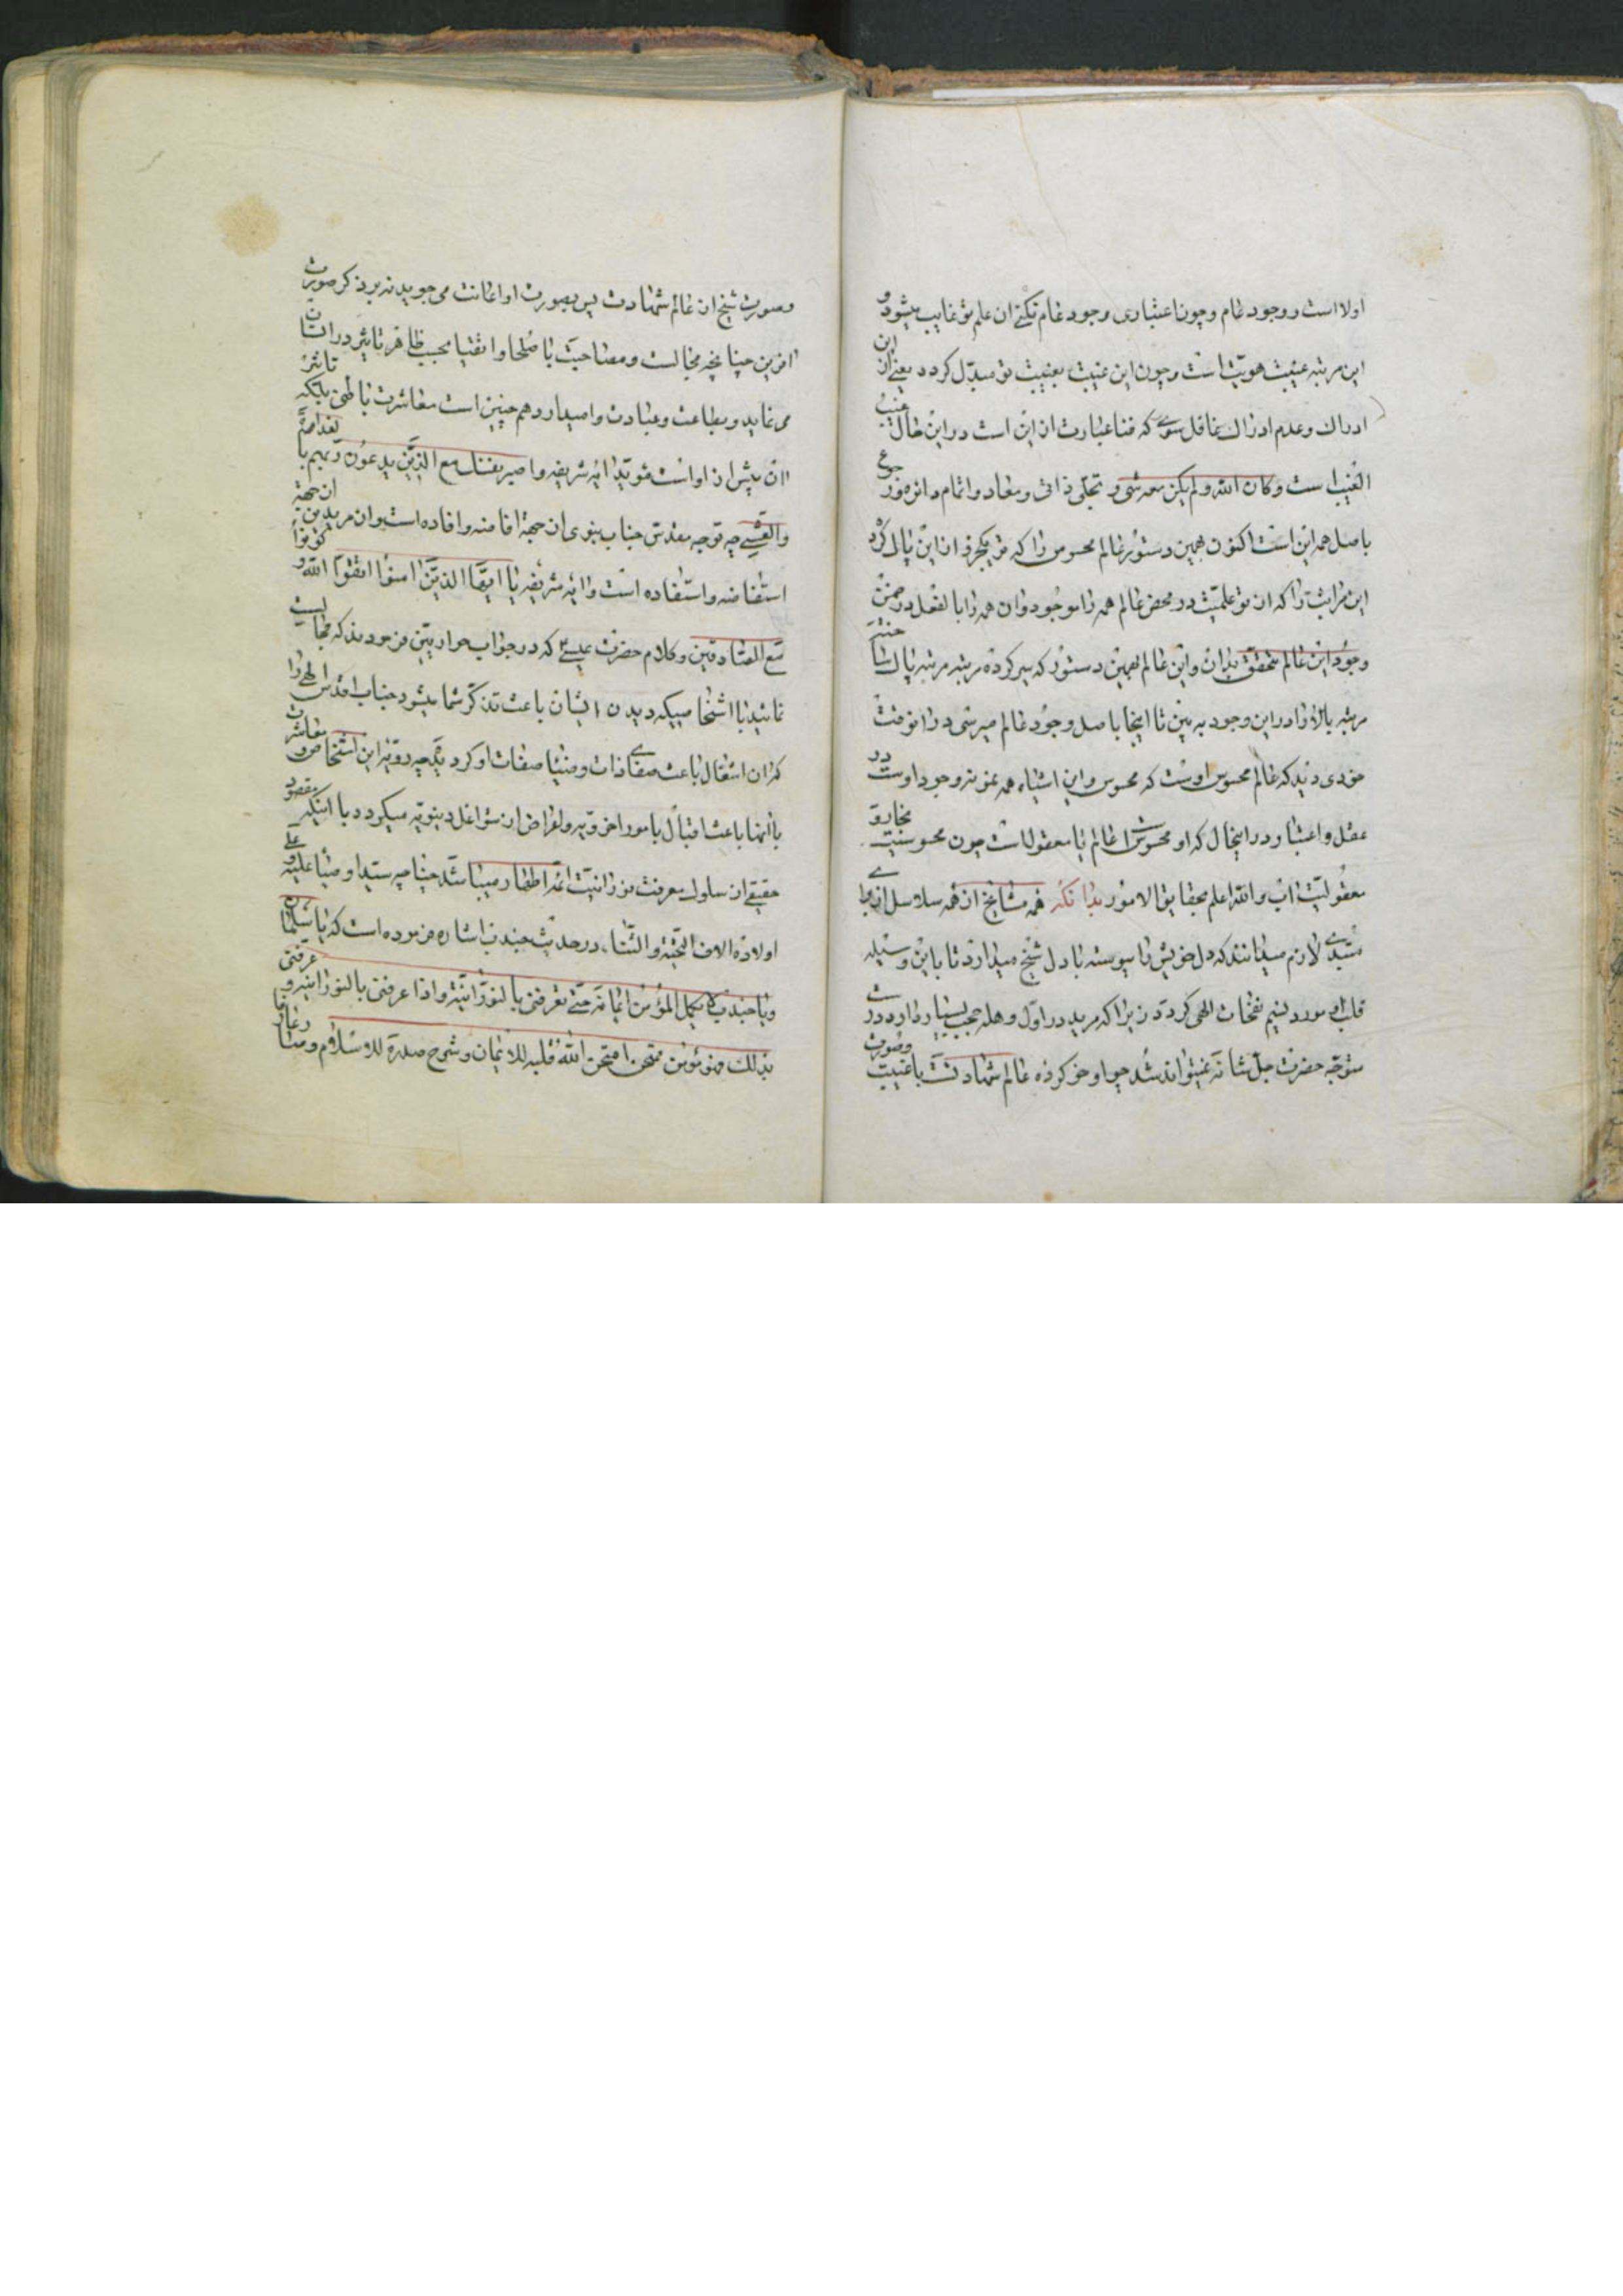 اولا است و وجود عام و چون اعتباری وجود عام نکنے ان علم تو غایب میشود و
این مرتبه غیبت هویت است و چون این غیبت بغیبت تو مبدل کردد یعنے از این
ادراك و عدم ادراك بما قل سوی که فنا عبارت از این است در این حال غیب
الغیب است و کان الله و لم یکن معه شی و تجلی ذاتی و معاد و اتمام دایره و رجوع
باصل همه این است اکنون همین دستور عالم محسوس را که تو یکجزؤ از این پال کرد
این مراتب را که از تو علمیت در محض عالم همه را موجود و ان همه را بالفعل در ضمن
وجود این عالم متحقق بدان و این عالم بهمین دستور که سیر کرده مرتبه مرتبه
مرتبه بالا را در این وجود به بین تا اینجا باصل وجود عالم میرسی در انوقت
خودی دید که عالم محسوس اوست که محسوس و این اشیاء همه نمونه وجود اوست در
عقل و اعتبار در اینحال که او محسوس است عالم یا معقول است چون محسوسیت
معقولیت اب و الله اعلم بحقایق الامور بدانکه همه مشایخ از همه سلاسل از برای
مبتدی لازم میدانند که دل خویش را پیوسته با دل شیخ میدارد تا باین وسیله
قلب او مورد نسیم نفحات الهی کردد زیرا که مرید در اول وهله حجب بسیار دارد و رو
متوجه حضرت جل شانه نمیتواند شد چو او خو کرده عالم شهادتست با غیبت و صورت
و صورت شیخ از عالم شهادت پس بصورت او اعانت می جوید نه بر ذکر صورت
افرین چنانچه مجالست و مصاحبت با صلحا و اتقیا بحسب ظاهر تاثیر در انسان
می نماید و بطاعت و عبادت وامیدارد هم چنین است معاشرت باطنی بلکه تاثیر
ان بیش از اوست مؤید ایه شریفه و اصبر نفسك مع الذین یدعون ربهم بالغداة
و العشے چه توجه مقدس جناب نبوی از جهة افاضه و افاده است و از مریدین از جهة
استفاضه و استفاده است و ایه شریفه یا ایها الذین امنوا اتقوا الله و کونوا
مع الصادقین و کلام حضرت عیسے که در جواب حواریین فرمودند که مجالست
نمائید با اشخاصیکه دیدن ایشان باعث تذکر شما میشود جناب اقدس الهے را
که ان اشتغال باعث صفای ذات و ضیاء صفات او کردد چه رویه این اشخاص و معاشرت
با انها باعث اقبال بامور اخرویه و اعراض از شواغل دنیویه میکردد با اینکه مقصود
حقیقے از سلوك معرفت نورانیت ائمه اطهار میباشد چنانچه سید اوصیا علیه و علے
اولاده الاف التحیة و الثناء در حدیث جندب اشاره فرموده است که یا سلمان
و یا جندب لا یکمل المؤمن ایمانه حتے یعرفنی بالنورانیة و اذا عرفنی بالنورانیة و عرفنی
بذلك فهو مؤمن ممتحن امتحن الله قلبه للایمان و شرح صدره للاسلام و صار عارفا